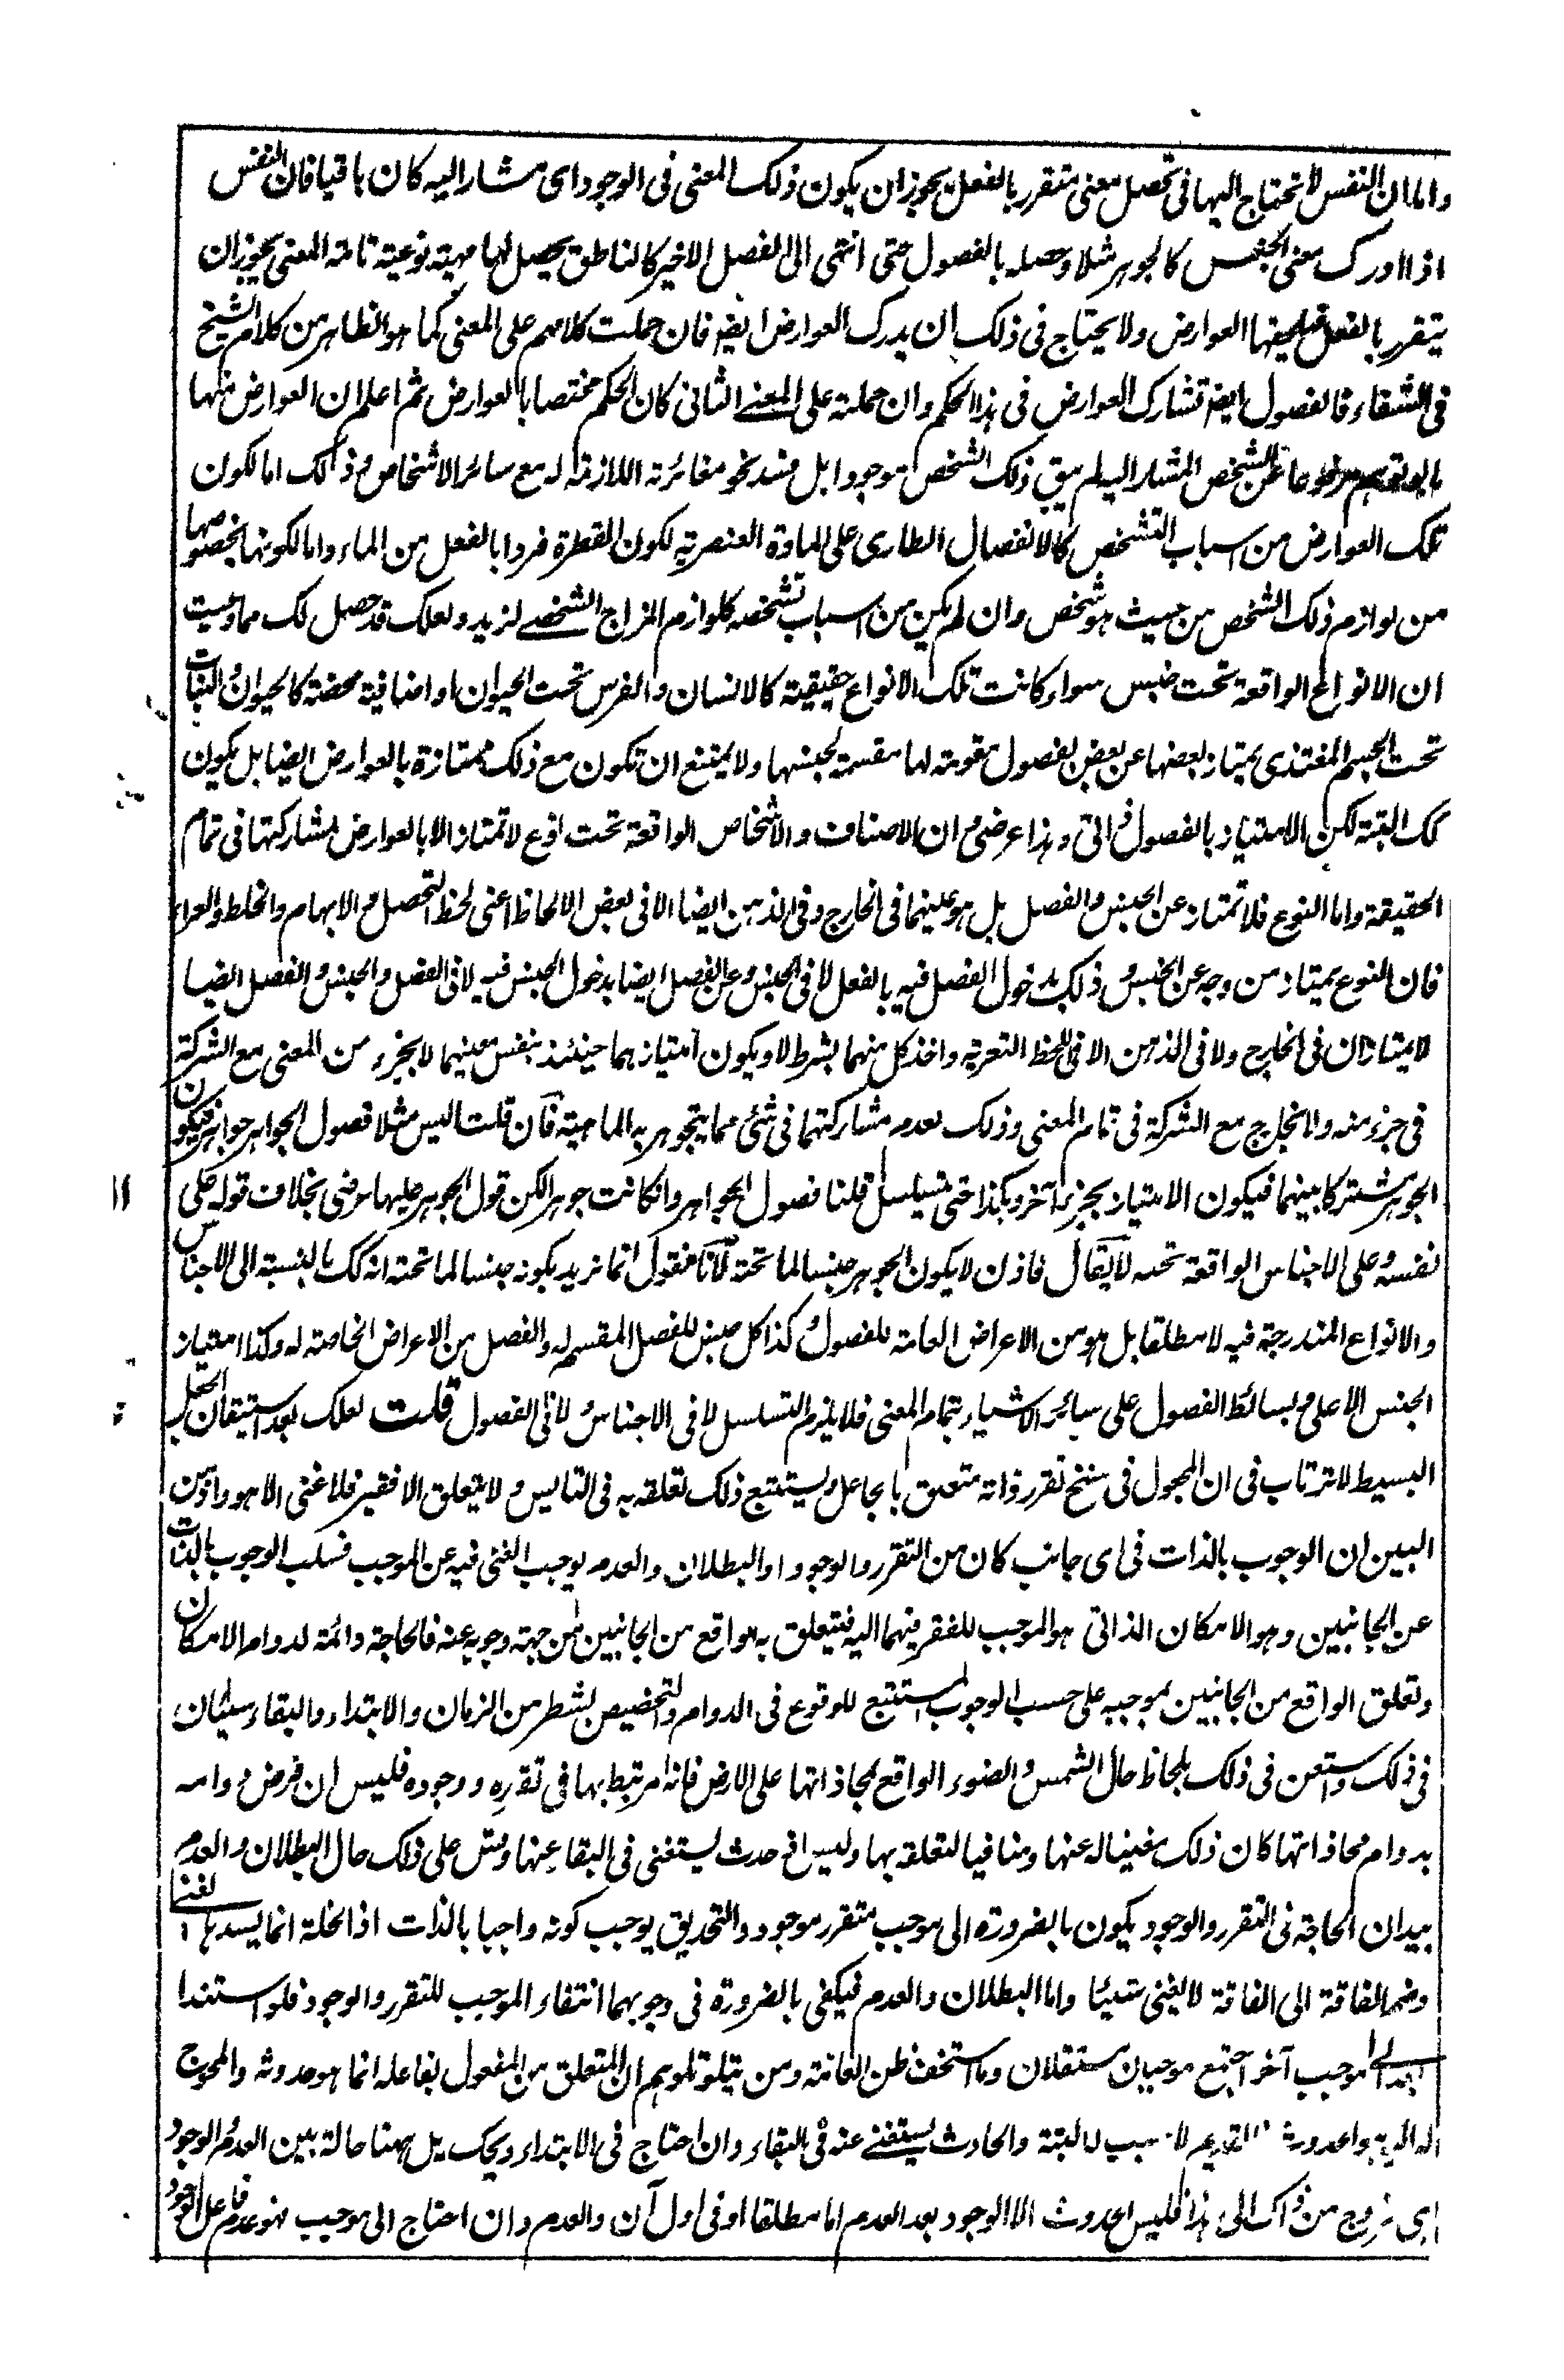 واما ان النفس لا تحتاج اليها فى تحصل معنى متقرر بالفعل يجوز ان يكون ذلك المعنى فى الوجود اى مشار اليه كان باقيا فان النفس
اذا ادرك معنى الجنس كالجوهر مثلا وحصله بالفصول حتى انتهى الى الفصل الاخير كالناطق يحصل لها مهية نوعية تامة المعنى يجوز ان
يتقرر بالفعل العوارض ولا يحتاج فى ذلك ان يدرك العوارض ايضا فان حملت كلامهم على المعنى كما هو الظاهر من كلام الشيخ
فى الشفاء فالفصول ايضا تشارك العوارض فى هذا الحكم وان حملته على المعنى الثانى كان الحكم مختصا بالعوارض ثم اعلم ان العوارض منها
عن الشخص المشار اليه لم يبق ذلك الشخص موجودا بل فسد نحو مغائرته اللازمة له مع سائر الاشخاص وذلك اما لكون
تلك العوارض من اسباب التشخص كالانفصال الطارى على المادة العنصرية لكون القطرة فردا بالفعل من الماء واما لكونها بخصوصها
من لوازم ذلك الشخص من حيث هو شخص وان لم يكن من اسباب تشخصه كلوازم المزاج الشخصى لزيد ولعلك قد حصل لك مما وعيت
ان الانواع الواقعة تحت جنس سواء كانت تلك الانواع حقيقية كالانسان والفرس تحت الحيوان او اضافية محضة كالحيوان والنبات
تحت الجسم المغتذى يمتاز بعضها عن بعض بفصول مقومة لها مقسمة لجنسها ولا يمتنع ان تكون مع ذلك ممتازة بالعوارض ايضا بل يكون
كك البتة لكن الامتياز بالفصول ذاتى وهذا عرضى وان الاصناف والاشخاص الواقعة تحت نوع لا تمتاز الا بالعوارض لمشاركتها فى تمام
الحقيقة واما النوع فلا تمتاز عن الجنس والفصل بل هو عينهما فى الخارج وفى الذهن ايضا الا فى بعض الالحاظ اعنى لحظ التحصل والابهام والخلط والعراء
فان النوع يمتاز من وجه عن الجنس وذلك بدخول الفصل فيه بالفعل لا فى الجنس وعن الفصل ايضا بدخول الجنس فيه لا فى الفصل والجنس والفصل ايضا
لا يمتازان فى الخارج ولا فى الذهن الا فى لحظ التعرية واخذ كل منهما بشرط لا ويكون امتيازهما حينئذ بنفس معنييهما لا بجزء من المعنى مع الشركة
فى جزء منه ولا بخارج مع الشركة فى تمام المعنى وذلك لعدم مشاركتهما فى شئ مما يتجوهر به الماهية فان قلت اليس مثلا فصول الجواهر جواهر فيكون
الجوهر مشتركا بينهما فيكون الامتياز بجزء آخر وهكذا حتى يتسلسل قلنا فصول الجواهر وان كانت جوهرا لكن قول الجوهر عليها عرضى بخلاف قوله على
نفسه وعلى الاجناس الواقعة تحته لا يقال فاذن لا يكون الجوهر جنسا لما تحته لانا نقول انما نريد بكونه جنسا لما تحته انه كك بالنسبة الى الاجناس
والانواع المندرجة فيه لا مطلقا بل هو من الاعراض العامة للفصول وكذا كل جنس للفصل المقسم له والفصل من الاعراض الخاصة له وكذا امتياز
الجنس الاعلى وبسائط الفصول على سائر الاشياء بتمام المعنى فلا يلزم التسلسل لا فى الاجناس ولا فى الفصول قلت لعلك بعد استيقان الجعل
البسيط لا ترتاب فى ان المجعول فى سنخ تقرر ذاته متعلق بالجاعل ويستتبع ذلك تعلقه به فى التأيس ولا يتعلق الا فقير فلا غنى الا هو واذ من
البين ان الوجوب بالذات فى اى جانب كان من التقرر والوجود او البطلان والعدم يوجب الغنى فيه عن الموجب فسلب الوجوب بالذات
عن الجانبين وهو الامكان الذاتى هو الموجب للفقر فيهما اليه فيتعلق به الواقع من الجانبين من جهة وجوبه عنه فالحاجة دائمة لدوام الامكان
وتعلق الواقع من الجانبين بموجبه على حسب الوجوب المستتبع للوقوع فى الدوام والتخصيص بشطر من الزمان والابتداء والبقاء سيان
فى ذلك واستعن فى ذلك بلحاظ حال الشمس والضوء الواقع بمحاذاتها على الارض فانه مرتبط بها فى تقرره ووجوده فليس ان فرض دوامه
بدوام محاذاتها كان ذلك مغنيا له عنها ومنافيا لتعلقه بها وليس اذ حدث يستغنى فى البقاء عنها وقس على ذلك حال البطلان والعدم
بيد ان الحاجة فى التقرر والوجود يكون بالضرورة الى موجب متقرر موجود والتحديق يوجب كونه واجبا بالذات اذ الخلة انما يسدها الغنى
وضم الفاقة الى الفاقة لا يغنى شيئا واما البطلان والعدم فيكفى بالضرورة فى وجوبهما انتفاء الموجب للتقرر والوجود فلو استندا
الى موجب آخر اجتمع موجبان مستقلان وما استخف ظن العامة ومن يتلو تلوهم ان المتعلق من المفعول بفاعله انما هو حدوثه والمحوج
القديم لا سبب له البتة والحادث يستغنى عنه فى البقاء وان احتاج فى الابتداء ويحك هل ههنا حالة بين العدم والوجود
من ذاك الى هذا فليس الحدوث الا الوجود بعد العدم اما مطلقا او فى اول آن والعدم وان احتاج الى موجب فهو عدم فاعل الوجود